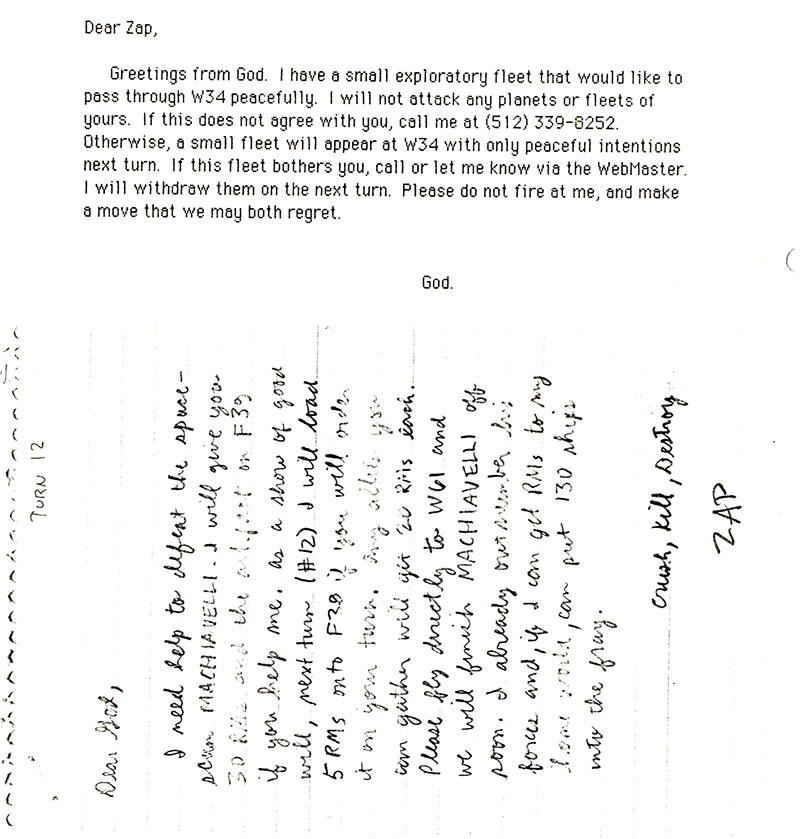 Dear Zap,
Greetings from God. I have a small exploratory fleet that would like to
pass through W34 peacefully. I will not attack any planets or fleets of
yours. If this does not agree with you, call me at (512) 339-8252.
Otherwise, a small fleet will appear at W34 with only peaceful intentions
next turn. If this fleet bothers you, call or let me know via the WebMaster.
I will withdraw them on the next turn. Please do not fire at me, and make
a move that we may both regret.
God.
TURN 12
Dear God,
I need help to defeat the space-
scum MACHIAVELLI. I will give you
30 RMs and the artifact on F39
if you help me. as a show of good
will, next turn (#12) I will load
5 RMs onto F38 if you will order
it on your turn. any allies you
can gather will get 20 RMs each.
Please fly directly to W61 and
we will finish MACHIAVELLI off
soon. I already outnumber his
forces and, if I can get RMs to my
home world, can put 130 ships
into the fray.
Crush, Kill, Destroy
ZAP